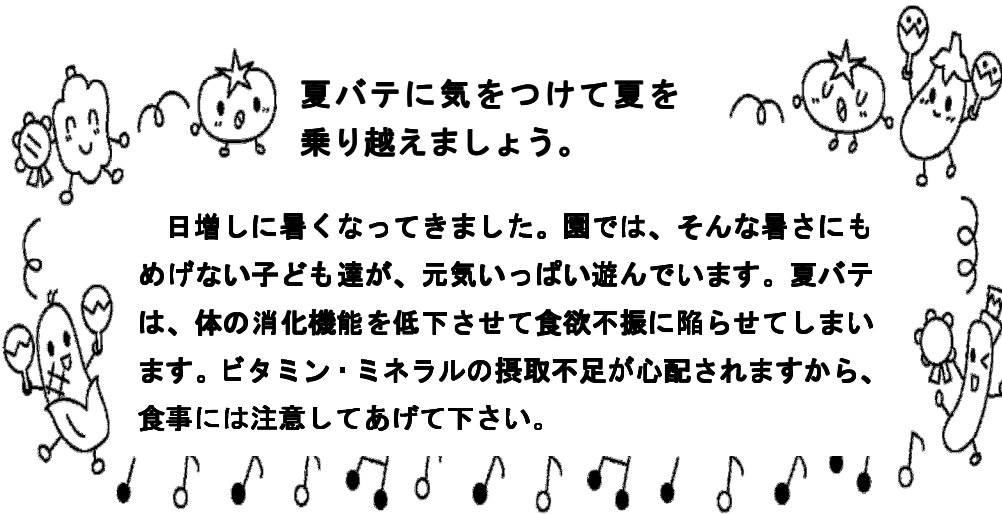 夏バテに気をつけて夏を
乗り越えましょう。
日増しに暑くなってきました。園では、そんな暑さにも
めげない子ども達が、元気いっぱい遊んでいます。夏バテ
は、体の消化機能を低下させて食欲不振に陥らせてしまい
ます。ビタミン・ミネラルの摂取不足が心配されますから、
食事には注意してあげて下さい。